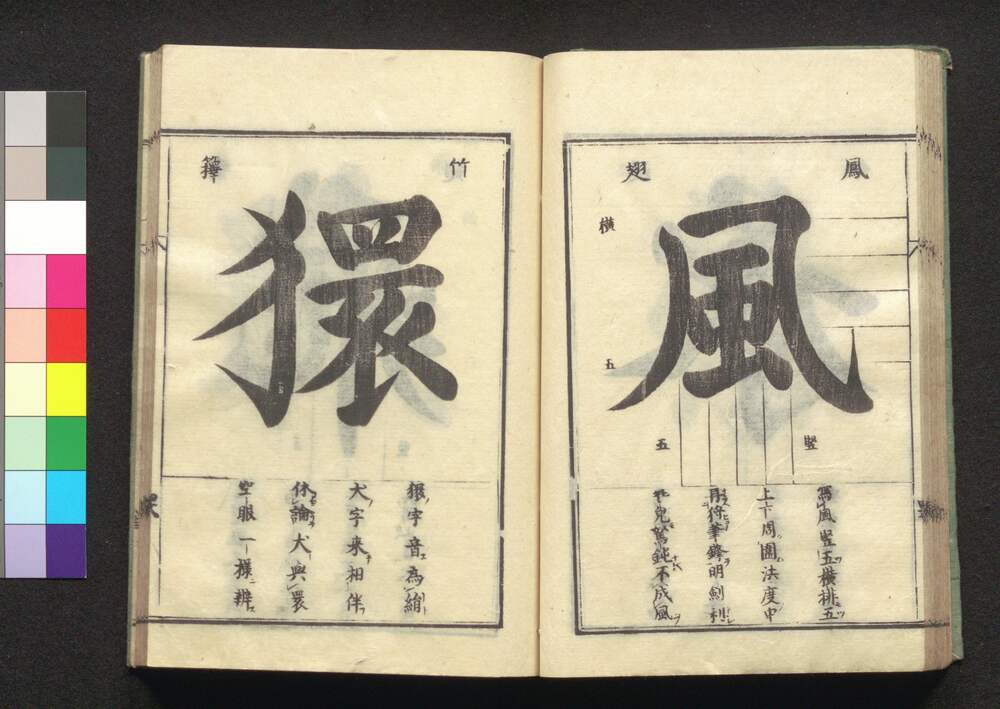 鳳翅
風
横五
竪五
寫風竪五横排五
上下周圍法度中
用將筆鋒明劍利
免駑鈍不成風
竹籜
獧
獧字音為絹
犬字来相伴
休論犬與睘
空眼一様辨